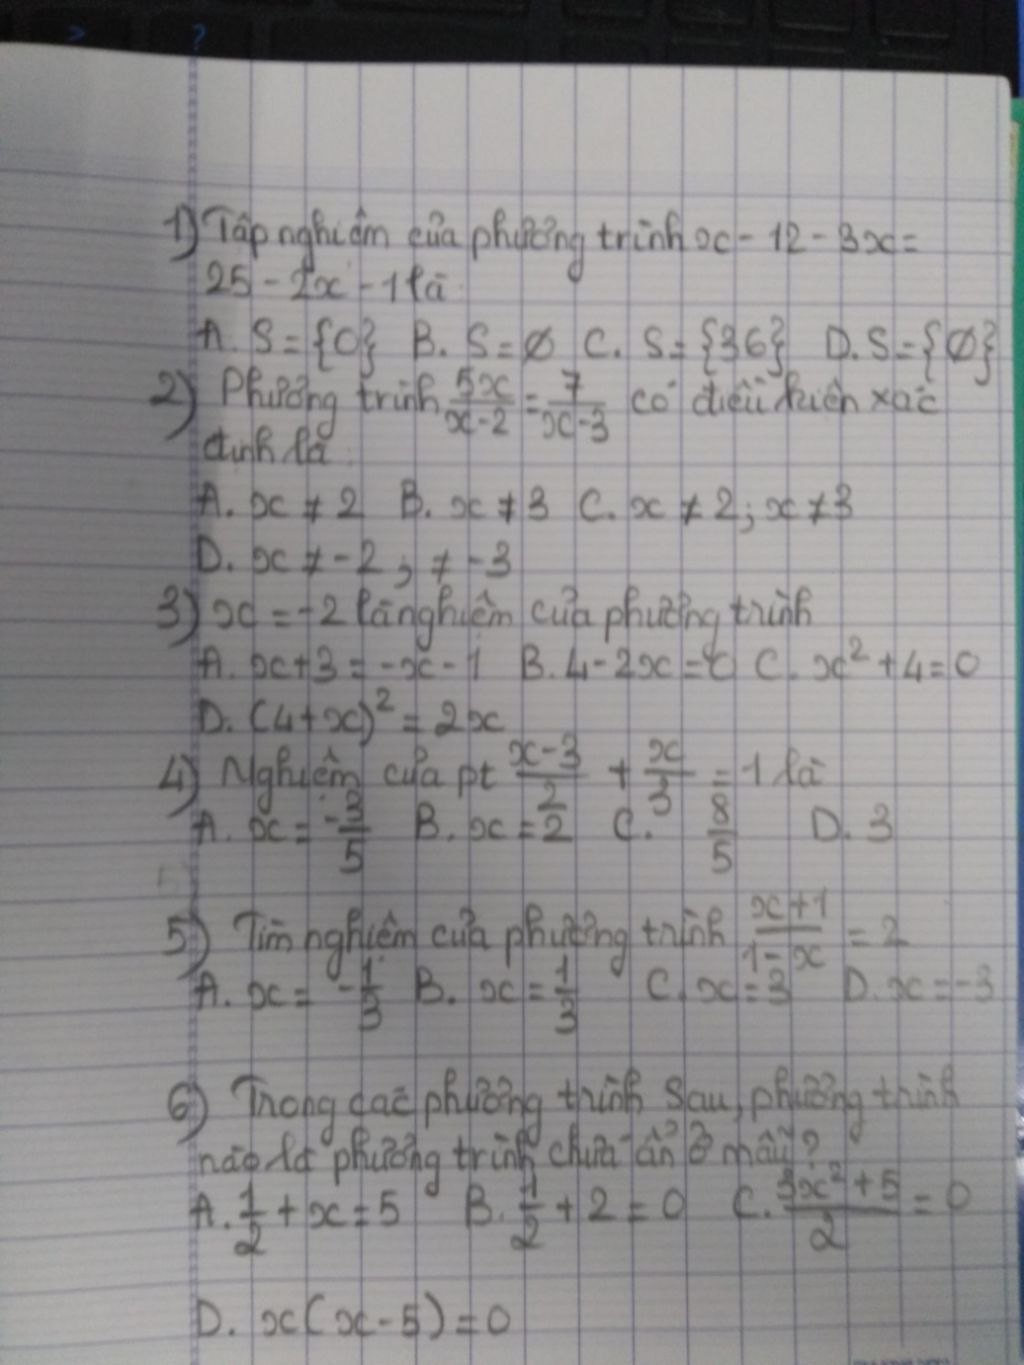 1) Tập nghiệm của phương trình x - 12 - 3x =
25 - 2x - 1 là
A. S = {0} B. S = ∅ C. S = {36} D. S = {∅}
2) Phương trình 5x/x-2 = 7/x-3 có điều kiện xác
định là
A. x ≠ 2 B. x ≠ 3 C. x ≠ 2; x ≠ 3
D. x ≠ -2, ≠ -3
3) x = -2 là nghiệm của phương trình
A. x + 3 = -x - 1 B. 4 - 2x = 0 C. x² + 4 = 0
D. (4 + x)² = 2x
4) Nghiệm của pt x-3/2 + x/3 = 1 là
A. x = -3/5 B. x = 2/2 C. 8/5 D. 3
5) Tìm nghiệm của phương trình x+1/1-x = 2
A. x = -1/3 B. x = 1/3 C. x = 3 D. x = -3
6) Trong các phương trình sau, phương trình
nào là phương trình chứa ẩn ở mẫu?
A. 1/2 + x = 5 B. 1/2 + 2 = 0 C. 3x² + 5/2 = 0
D. x(x - 5) = 0